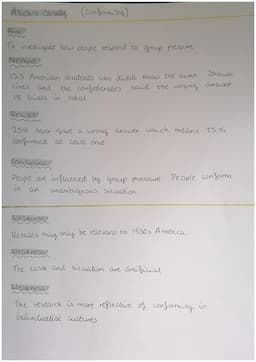 Asch's Study (Conformity)
Aim:
To investigate how people respond to group pressure.
Method:
123 American students who didn't know the aims. Shown
lines and the confederates said the wrong answer
12 times in total
Results:
25% never gave a wrong answer which means 75%
conformed at least once
Conclusion:
People are influenced by group pressure. People conform
in an unambiguous situation.
Weakness:
Results may only be relevant to 1950s America.
Weakness:
The task and situation are artificial
Weakness:
The research is more reflective of conformity in
individualist cultures